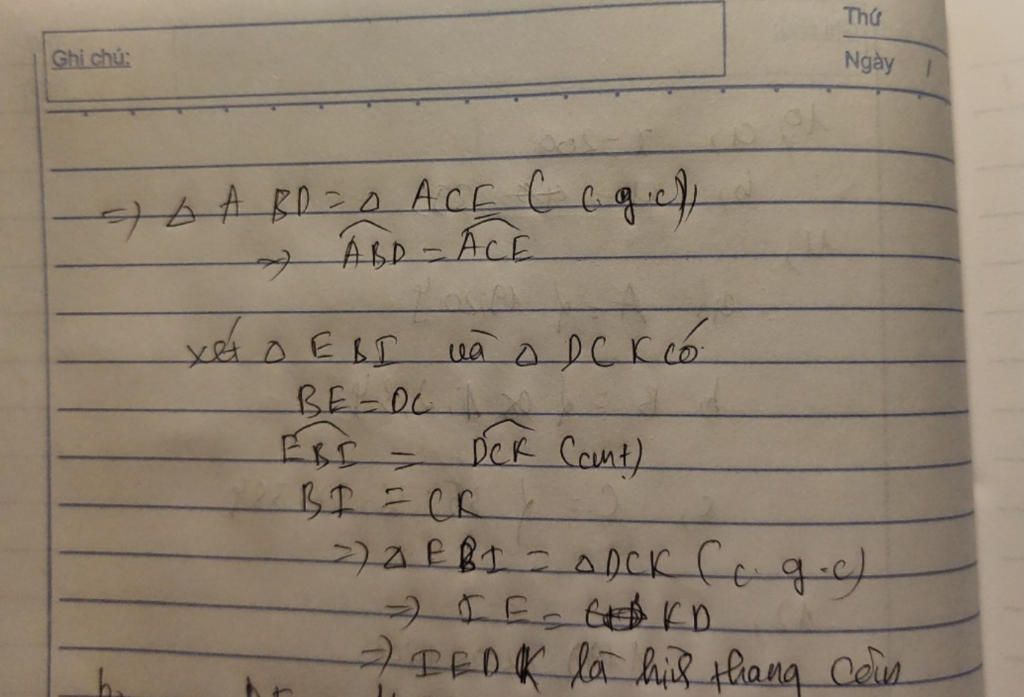 Thứ
Ghi chú:
Ngày /
=) △ ABD = △ ACE ( c.g.c))
=> ABD = ACE
xét △ EBI và △ DCK có
BE = DC
EBI = DCK (cmt)
BI = CK
=) △ EBI = △ DCK ( c.g.c)
=) IE = KD
=) IEDK là hìn thang cân